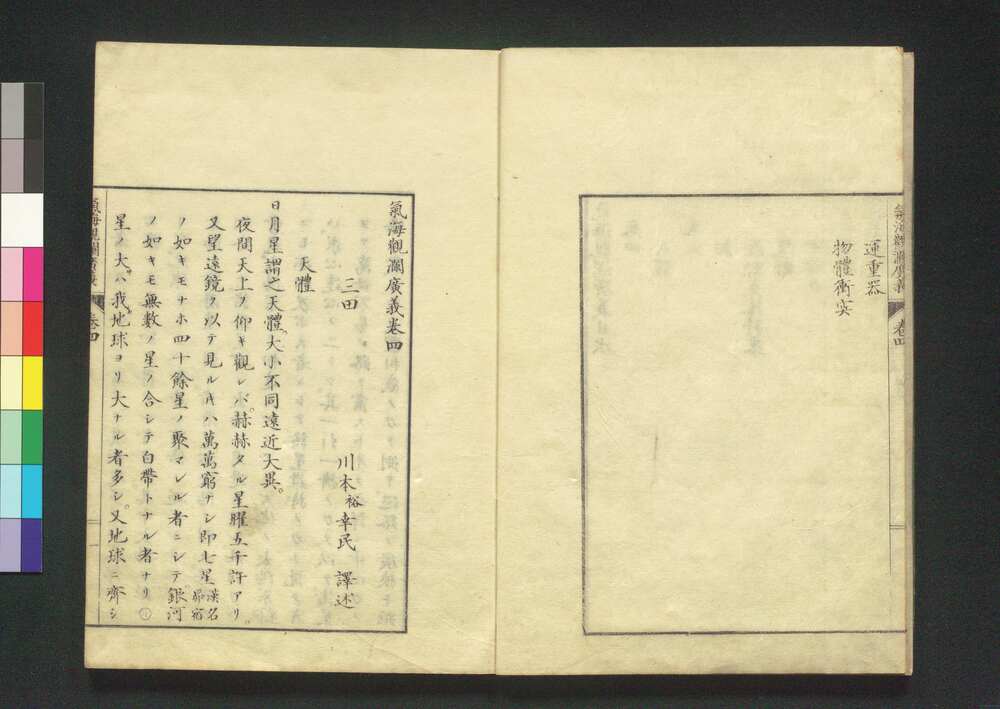 氣海觀瀾廣義 卷四
運重器
物體衝突
氣海觀瀾廣義卷四
三田 川本裕幸民 譯述
天體
日月星謂之天體大小不同遠近大異。
夜間天上ヲ仰キ觀レバ。赫赫タル星曜五千許アリ。
又望遠鏡ヲ以テ見ルキハ萬萬窮ナシ即七星漢名昴宿
ノ如キモナホ四十餘星ノ聚マレル者ニシテ。銀河
ノ如キモ無數ノ星ノ合シテ白帶トナル者ナリ
星ノ大ハ我地球ヨリ大ナル者多シ。又地球ニ齊シ
氣海觀瀾廣義 卷四